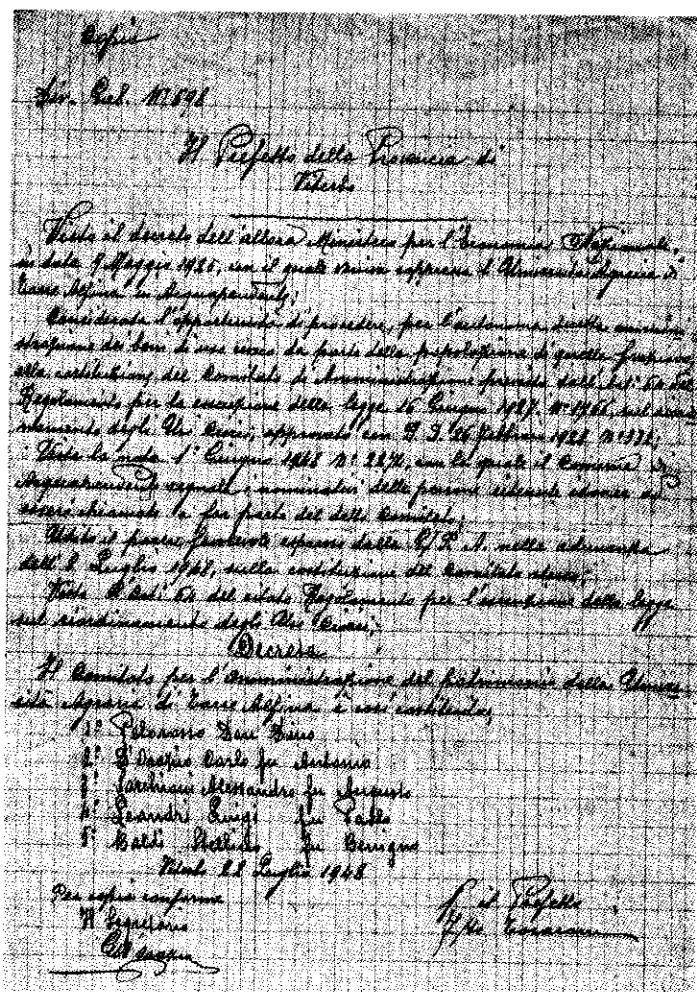 Copia
Div. Gab. N° 698
Il Prefetto della Provincia di
Viterbo
Visto il decreto dell'allora Ministero per l'Economia Nazionale,
in data 9 Maggio 1925, con il quale venne l'Università Agraria di
Torre Alfina in Acquapendente;
Considerata l'opportunità di procedere, per l'autonoma diretta ammini
strazione dei beni di uso civico da parte della popolazione di quella frazione
alla costituzione del Comitato di Amministrazione previsto dall'art. 64 del
Regolamento per la esecuzione della legge 16 Giugno 1927 N° 1766 sul riordi
namento degli Usi Civici, approvato con 26 Febbraio 1928 N° 332;
Vista la nota 1° Giugno 1948 N° con la quale il Comune di
Acquapendente segnala i nominativi delle persone ritenute idonee ad
essere chiamate a far parte del detto Comitato;
Udito il parere favorevole espresso dalla G.P.A. nella adunanza
dell'8 Luglio 1948, sulla costituzione del Comitato stesso;
Visto l'Art. 64 del citato Regolamento per l'esecuzione della legge
sul riordinamento degli Usi Civici;
Decreta
Il Comitato per l'amministrazione del patrimonio della Univer
sità Agraria di Torre Alfina è così costituito;
1° Pelorosso
2° Carlo fu Antonio
3° Alessandro fu Augusto
4° Leandri Luigi fu Paolo
5° Baldi fu Benigno
Viterbo 22 Luglio 1948
Per copia conforme
Il Segretario
p. il Prefetto